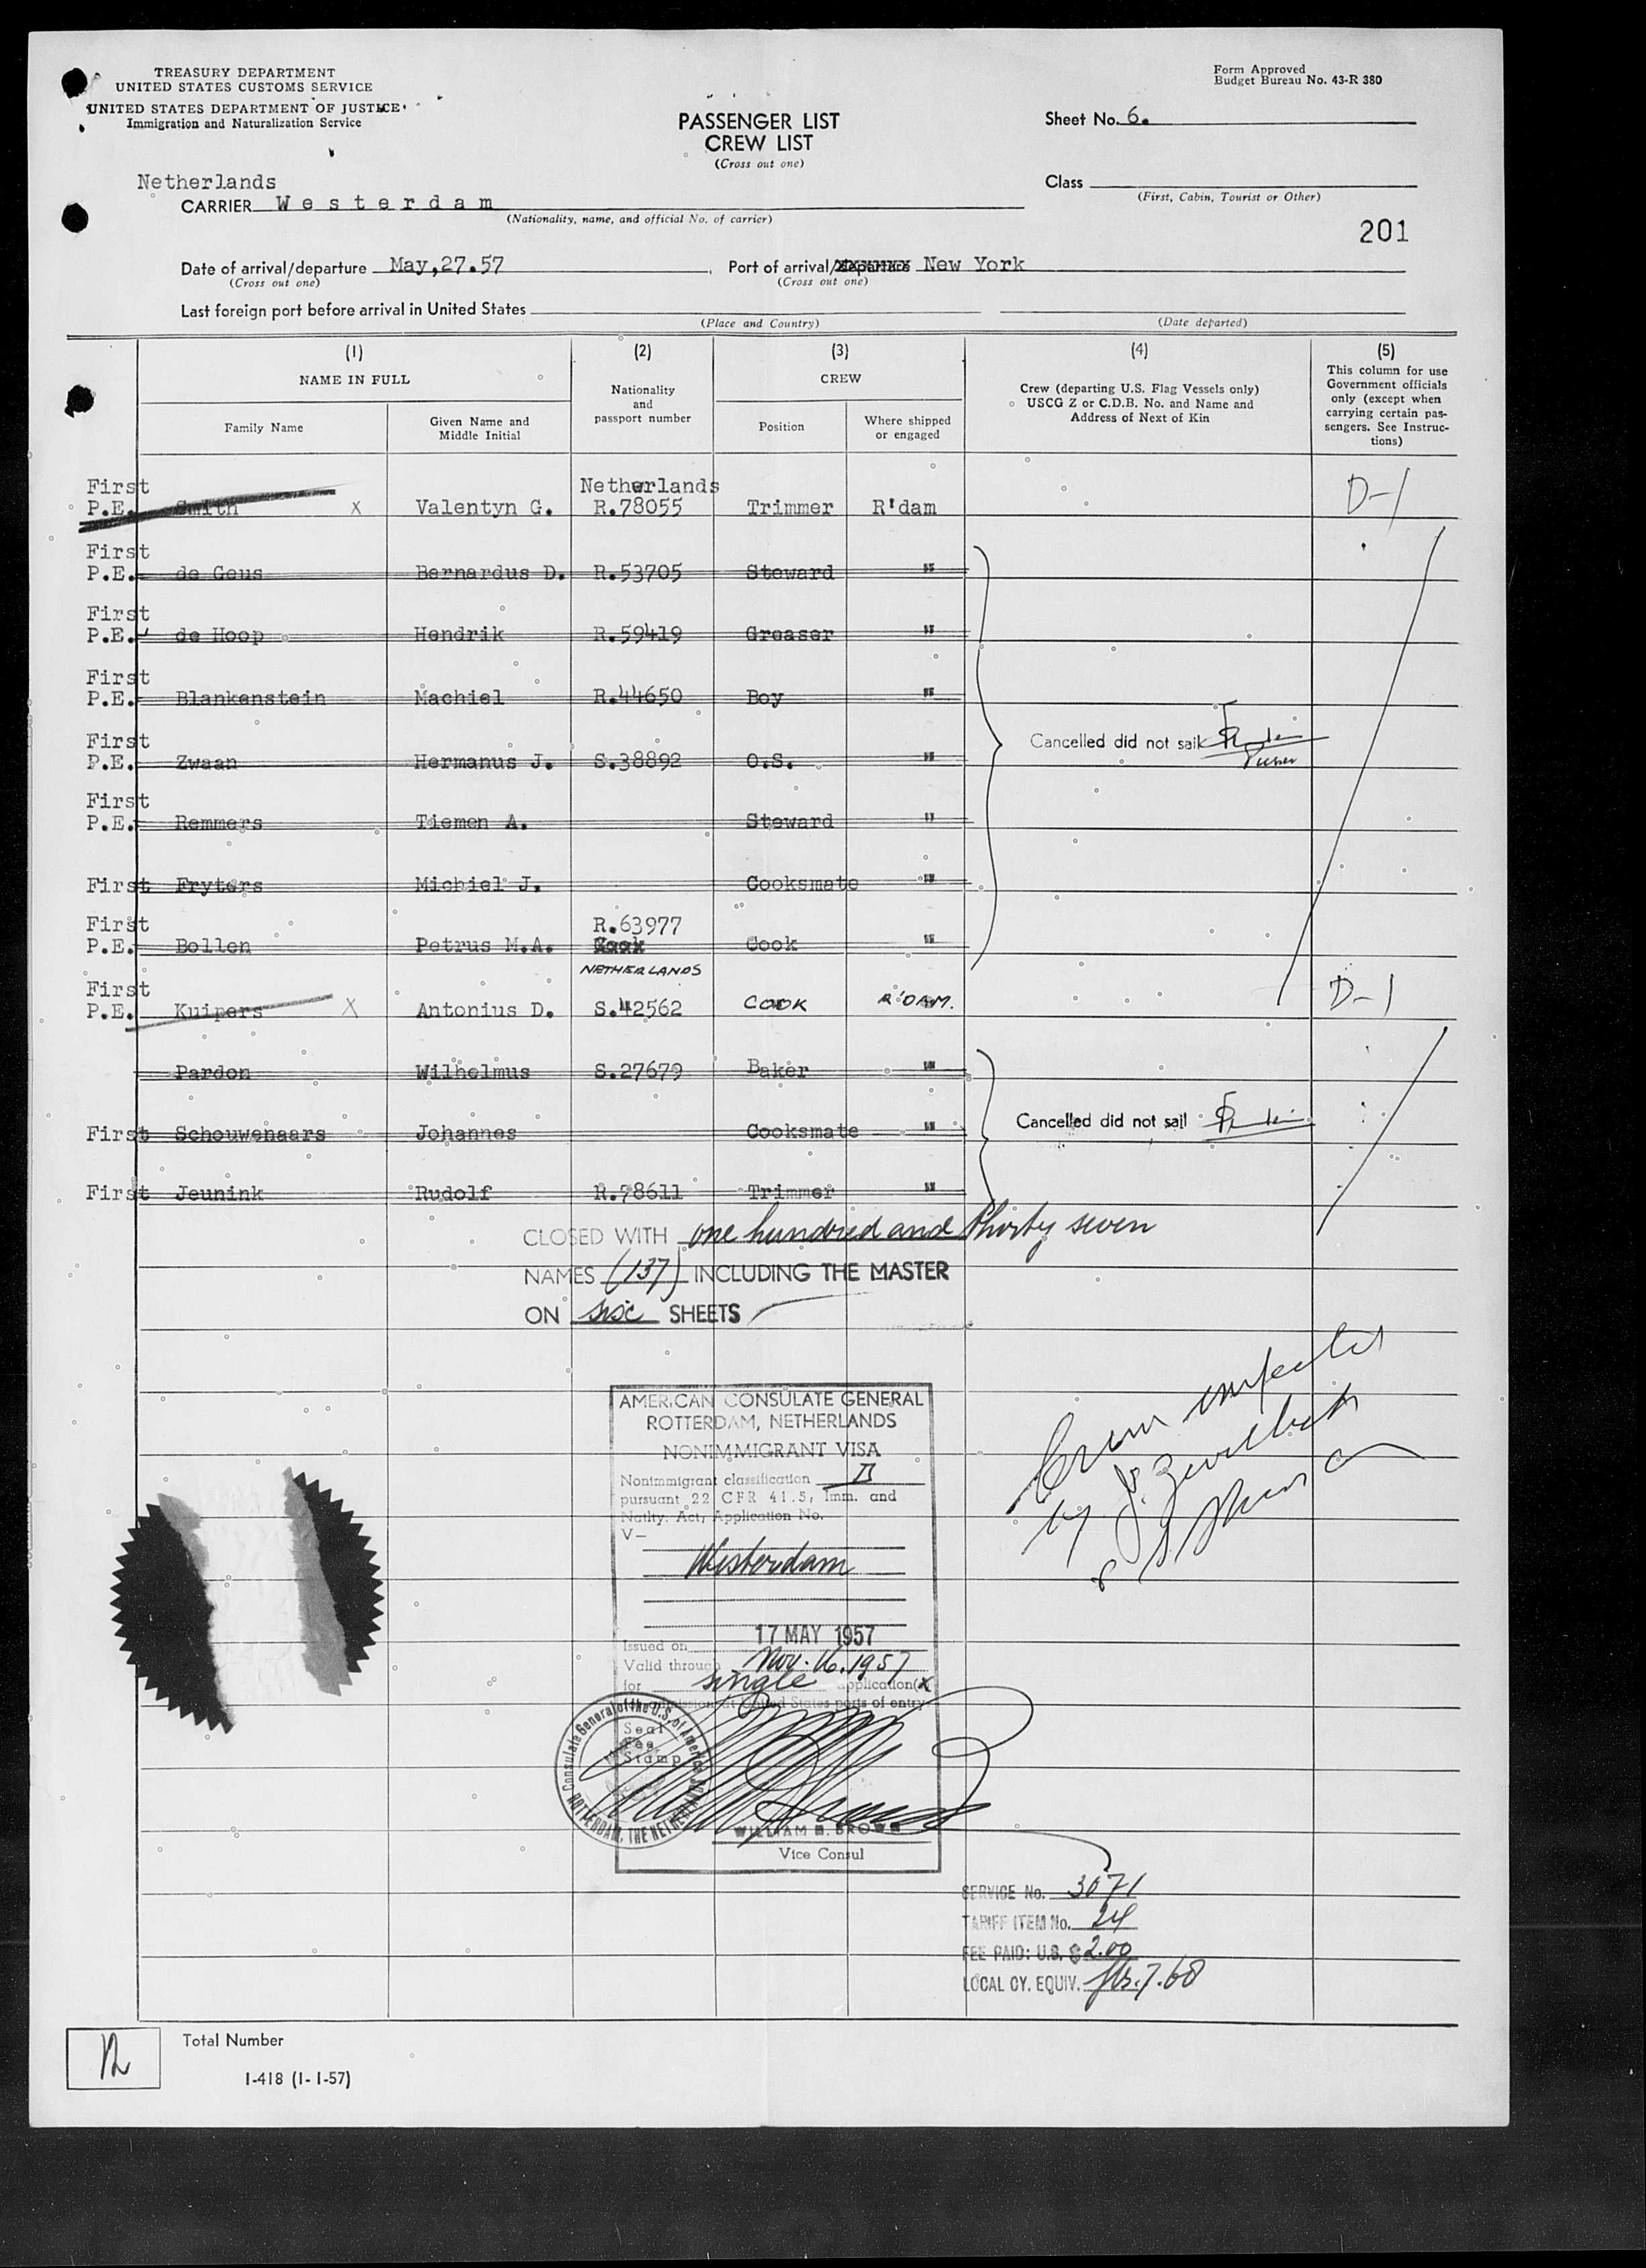 TREASURY DEPARTMENT
UNITED STATES CUSTOMS SERVICE
UNITED STATES DEPARTMENT OF JUSTICE
Immigration and Naturalization Service
Form Approved
Budget Bureau No. 43-R 380
PASSENGER LIST
CREW LIST
(Cross out one)
Sheet No. 6.
Netherlands
CARRIER Westerdam
(Nationality, name, and official No. of carrier)
Class
(First, Cabin, Tourist or Other)
201
Date of arrival/departure May,27.57
(Cross out one)
Port of arrival/departure New York
(Cross out one)
Last foreign port before arrival in United States
(Place and Country)
(Date departed)
(1) (2) (3) (4) (5)
NAME IN FULL
Family Name
Given Name and Middle Initial
Nationality and passport number
CREW
Position
Where shipped or engaged
Crew (departing U.S. Flag Vessels only)
USCG Z or C.D.B. No. and Name and
Address of Next of Kin
This column for use
Government officials
only (except when
carrying certain pas-
sengers. See Instruc-
tions)
First Netherlands
P.E. Smith X Valentyn G. R.78055 Trimmer R'dam D-1
First
P.E. de Geus Bernardus D. R.53705 Steward "
First
P.E. de Hoop Hendrik R.59419 Greaser "
First
P.E. Blankenstein Machiel R.44650 Boy "
Cancelled did not sail
First
P.E. Zwaan Hermanus J. S.38892 O.S. "
First
P.E. Remmers Tiemen A. Steward "
First Fryters Michiel J. Cooksmate "
First R.63977
P.E. Bollen Petrus M.A. Cook "
NETHERLANDS
First
P.E. Kuipers X Antonius D. S.42562 COOK R'DAM. D-1
Pardon Wilhelmus S.27679 Baker "
Cancelled did not sail
First Schouwenaars Johannes Cooksmate "
First Jeunink Rudolf R.78611 Trimmer "
CLOSED WITH one hundred and thirty seven
NAMES (137) INCLUDING THE MASTER
ON six SHEETS
AMERICAN CONSULATE GENERAL
ROTTERDAM, NETHERLANDS
NONIMMIGRANT VISA
Nonimmigrant classification D
pursuant 22 CFR 41.5, Imm. and
Natlty. Act, Application No.
V-
Westerdam
Issued on 17 MAY 1957
Valid through Nov. 16. 1957
for single application(x
admission at United States ports of entry
Seal
Fee
Stamp
Consulate General of the U.S. of America
ROTTERDAM, THE NETHERLANDS
WILLIAM B. BROWN
Vice Consul
Crew inspected
by
SERVICE No. 3071
TARIFF ITEM No. 24
FEE PAID: U.S. $ 2.00
LOCAL CY. EQUIV. fls. 7.60
12
Total Number
I-418 (1-1-57)